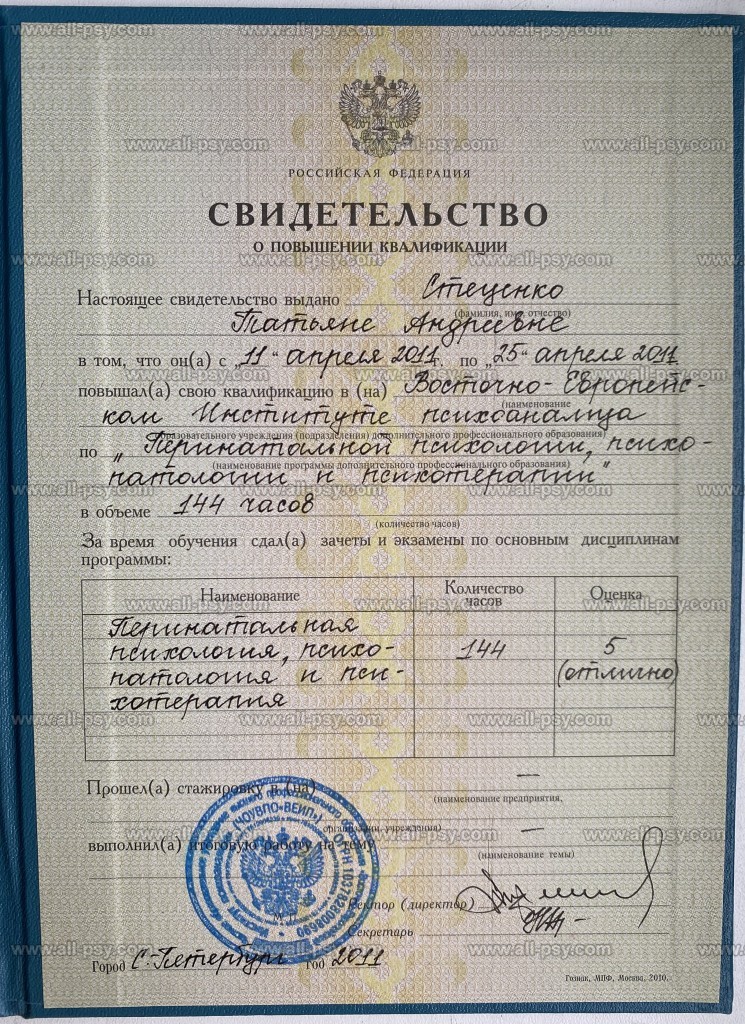 РОССИЙСКАЯ ФЕДЕРАЦИЯ
СВИДЕТЕЛЬСТВО
О ПОВЫШЕНИИ КВАЛИФИКАЦИИ
Настоящее свидетельство выдано Стеценко
(фамилия, имя, отчество)
Татьяне Андреевне
в том, что он(а) с „11“ апреля 2011г. по „25“ апреля 2011
повышал(а) свою квалификацию в (на) Восточно-Европейс-
(наименование
ком Институте психоанализа
образовательного учреждения (подразделения) дополнительного профессионального образования)
по „Перинатальной психологии, психо-
(наименование программы дополнительного профессионального образования)
патологии и психотерапии"
в объеме 144 часов
(количество часов)
За время обучения сдал(а) зачеты и экзамены по основным дисциплинам
программы:
Наименование Количество часов Оценка
Перинатальная
психология, психо- 144 5
патология и пси- (отлично)
хотерапия
Прошел(а) стажировку в (на) —
(наименование предприятия,
организации, учреждения)
выполнил(а) итоговую работу на тему —
(наименование темы)
ЧОУВПО «ВЕИП»
М.П.
Ректор (директор)
Секретарь
Город С.-Петербург год 2011
Гознак, МПФ, Москва, 2010.
www.all-psy.com